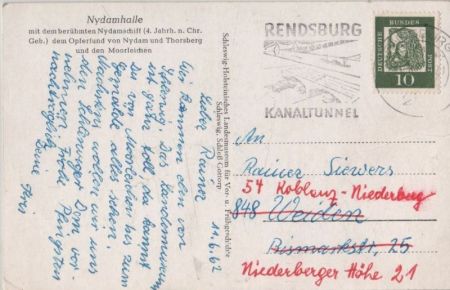 Nydamhalle
mit dem berühmten Nydamschiff (4. Jahrh. n. Chr.
Geb.) dem Opferfund von Nydam und Thorsberg
und den Moorleichen
11.6.62
Lieber Rainer
Schleswig. Das Landesmuseum
ist ganz toll. Da kannst
Du von Moorleichen bis zum
Gemälde alles sehen.
wollen wir uns
den Schleswiger Dom vor-
nehmen. Frohe Pfingsten
Schleswig-Holsteinisches Landesmuseum für Vor- u. Frühgeschichte
Schleswig, Schloß Gottorp
RENDSBURG
KANALTUNNEL
DEUTSCHE BUNDESPOST
10
An
Rainer Siewers
54 Koblenz-Niederberg
848 Weiden
Bismarckstr. 25
Niederberger Höhe 21